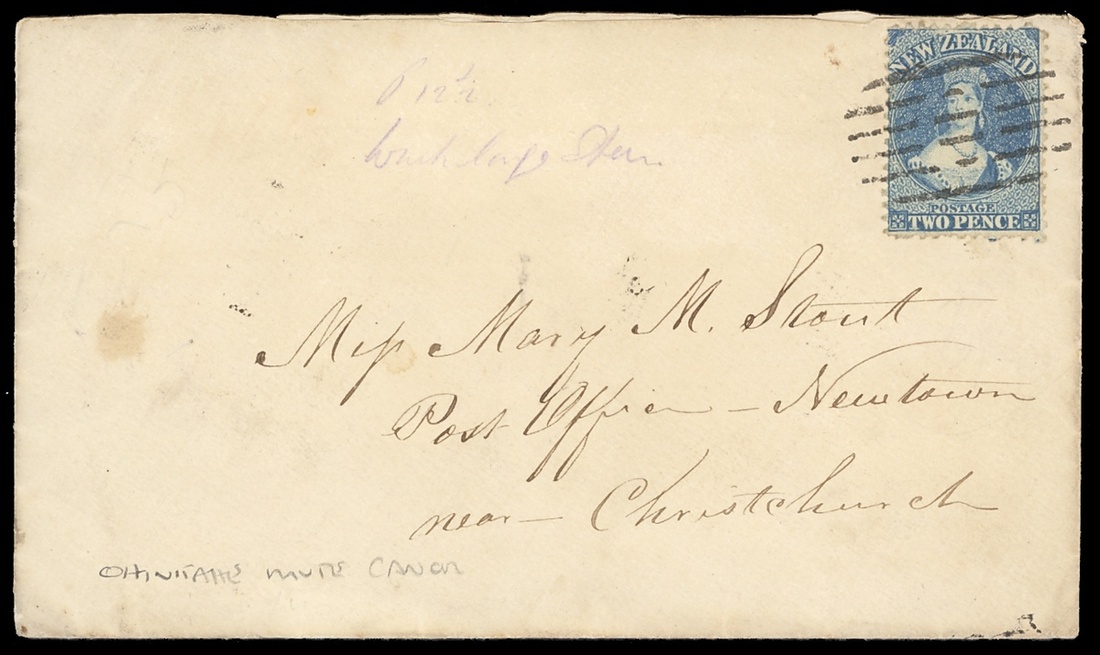 P 12½
Wmk large Star
NEW ZEALAND
POSTAGE
TWO PENCE
Miss Mary M. Stout
Post Office – Newtown
near – Christchurch
OHINITAHE MUTE CANCEL